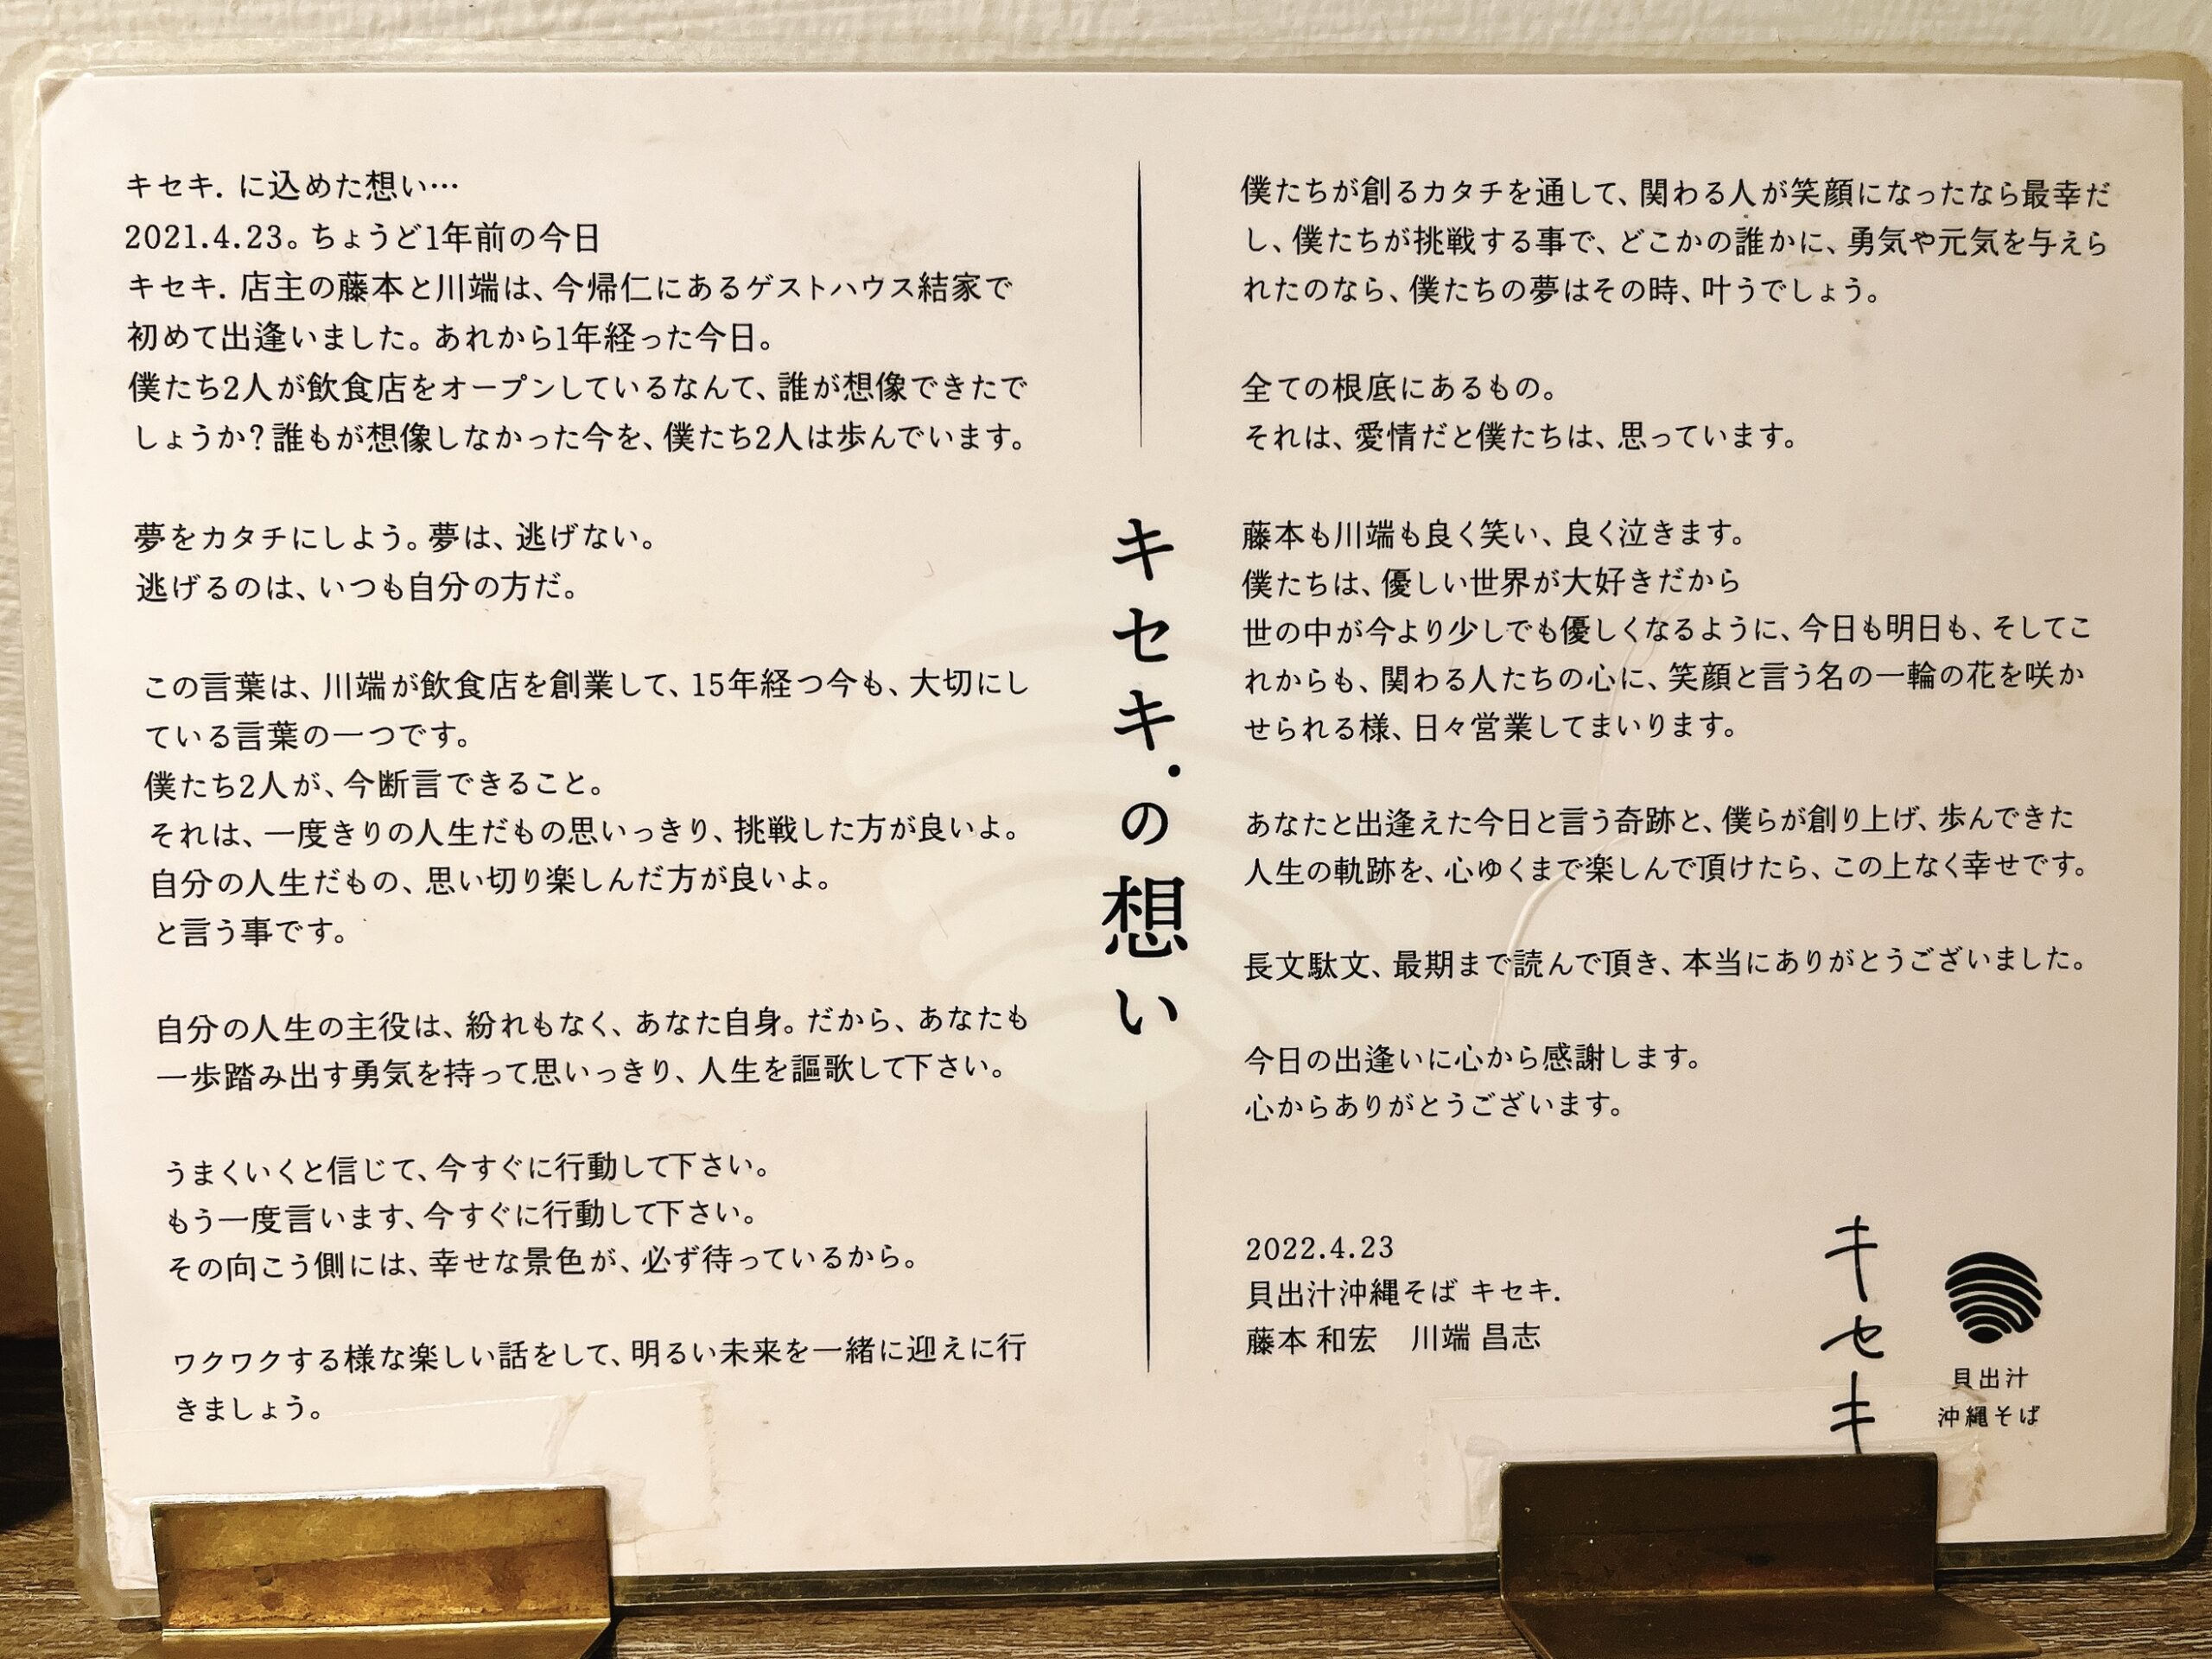 キセキ. に込めた想い…
2021.4.23。ちょうど1年前の今日
キセキ. 店主の藤本と川端は、今帰仁にあるゲストハウス結家で
初めて出逢いました。あれから1年経った今日。
僕たち2人が飲食店をオープンしているなんて、誰が想像できたで
しょうか?誰もが想像しなかった今を、僕たち2人は歩んでいます。
夢をカタチにしよう。夢は、逃げない。
逃げるのは、いつも自分の方だ。
この言葉は、川端が飲食店を創業して、15年経つ今も、大切にし
ている言葉の一つです。
僕たち2人が、今断言できること。
それは、一度きりの人生だもの思いっきり、挑戦した方が良いよ。
自分の人生だもの、思い切り楽しんだ方が良いよ。
と言う事です。
自分の人生の主役は、紛れもなく、あなた自身。だから、あなたも
一歩踏み出す勇気を持って思いっきり、人生を謳歌して下さい。
うまくいくと信じて、今すぐに行動して下さい。
もう一度言います、今すぐに行動して下さい。
その向こう側には、幸せな景色が、必ず待っているから。
ワクワクする様な楽しい話をして、明るい未来を一緒に迎えに行
きましょう。
キセキ.の想い
僕たちが創るカタチを通して、関わる人が笑顔になったなら最幸だ
し、僕たちが挑戦する事で、どこかの誰かに、勇気や元気を与えら
れたのなら、僕たちの夢はその時、叶うでしょう。
全ての根底にあるもの。
それは、愛情だと僕たちは、思っています。
藤本も川端も良く笑い、良く泣きます。
僕たちは、優しい世界が大好きだから
世の中が今より少しでも優しくなるように、今日も明日も、そしてこ
れからも、関わる人たちの心に、笑顔と言う名の一輪の花を咲か
せられる様、日々営業してまいります。
あなたと出逢えた今日と言う奇跡と、僕らが創り上げ、歩んできた
人生の軌跡を、心ゆくまで楽しんで頂けたら、この上なく幸せです。
長文駄文、最期まで読んで頂き、本当にありがとうございました。
今日の出逢いに心から感謝します。
心からありがとうございます。
2022.4.23
貝出汁沖縄そば キセキ.
藤本 和宏　川端 昌志
キセキ
貝出汁
沖縄そば